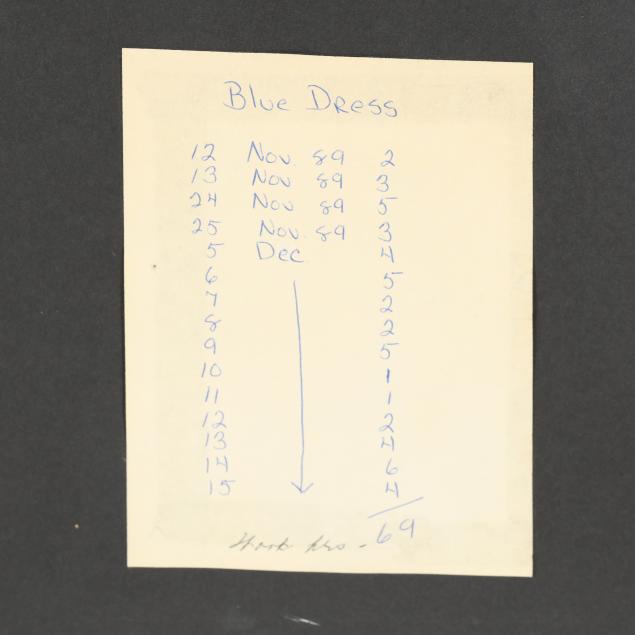 Blue Dress
12 Nov. 89 2
13 Nov 89 3
24 Nov 89 5
25 Nov. 89 3
5 Dec 4
6 5
7 2
8 2
9 5
10 1
11 1
12 2
13 4
14 6
15 4
hrs - 69